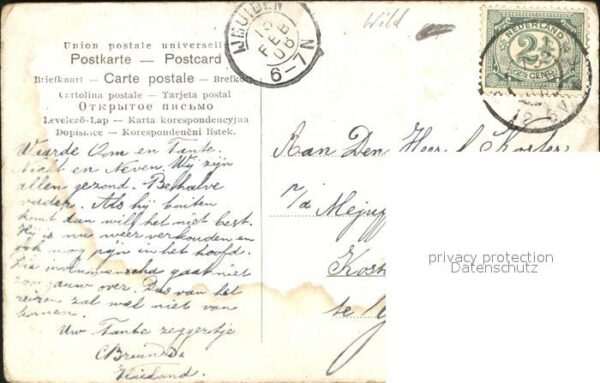 Wild
Union postale universelle
Postkarte — Postcard
Briefkaart — Carte postale — Brefkort
Cartolina postale — Tarjeta postal
Открытое письмо
Levelező-Lap — Karta korespondencyjna
Dopisnice — Korespondenční lístek.
IJMUIDEN
FEB
6-7N
NEDERLAND
2½
2½ CENT
Waarde Oom en Tante.
Nicht en Neven. Wij zijn
allen gezond. Behalve
vader. Als hij buiten
komt dan wil het niet best.
Hij is nu weer verkouden en
ook nog pijn in het hoofd.
gaat niet
gauw over. Dus van het
reizen zal wel niet van
komen.
Uw Tante zeggertje
Aan Den Heer
p/a Mejuff
Kost
te
privacy protection
Datenschutz